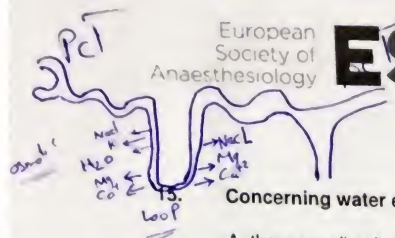 Pct
European
Society of
Anaesthesiology
ES
NaCl
K
H2O
Mg
Ca
NaCl
Mg2
Ca
15. Concerning water e
Loop